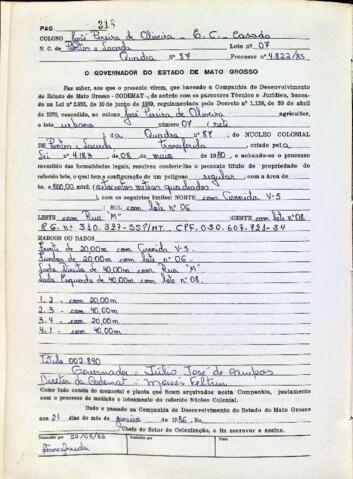 PAG. 318
COLONO José Pereira de Oliveira - E. C. - Casado
N. C. de Pontes e Lacerda Lote nº 07
Quadra nº 87 Processo nº 4.822/85
O GOVERNADOR DO ESTADO DE MATO GROSSO
Faz saber, aos que o presente virem, que havendo a Companhia de Desenvolvimento
do Estado de Mato Grosso - CODEMAT -, de acordo com os pareceres Técnico e Jurídico, basea-
do na Lei nº 2.925, de 10 de junho de 1969, regulamentada pelo Decreto nº 1.138, de 29 de abril
de 1970, concedido, ao colono José Pereira de Oliveira agricultor,
o lote urbano número 07 (sete)
da Quadra nº 87, DO NÚCLEO COLONIAL
DE Pontes e Lacerda transferida, criado pela
Lei nº 4.183 de 08 de maio de 1980, e achando-se o processo
revestido das formalidades legais, resolveu conferir-lhe o presente título de propriedade do
referido lote, o qual tem a configuração de um polígono regular com a área de
hs = 800,00 mts² (oitocentos metros quadrados)
), com os seguintes limites: NORTE com Avenida V-5
, SUL com lote nº 06
LESTE com Rua "M" OESTE com lote nº 08
R.G. nº 310.327-SSP/MT. CPF. 030.607.721-34
MARCOS OU DADOS
Frente de 20,00m com Avenida V-5
Fundos de 20,00m com lote nº 06.
Lado Direito de 40,00m com Rua "M"
Lado Esquerdo de 40,00m com lote nº 08.
1.2 - com 20,00m
2.3 - com 40,00m
3.4 - com 20,00m
4.1 - com 40,00m
Título 002.890
Governador - Júlio José de Campos
Diretor da Codemat - Moisés Feltrin
Como tudo consta do memorial e planta que ficam arquivados nesta Companhia, juntamente
com o processo de medição e loteamento do referido Núcleo Colonial.
Dado e passado na Companhia de Desenvolvimento do Estado de Mato Grosso
aos 21 dias do mês de janeiro de 1986. Eu,
Chefe do Setor de Colonização, o fiz escrever e assino.